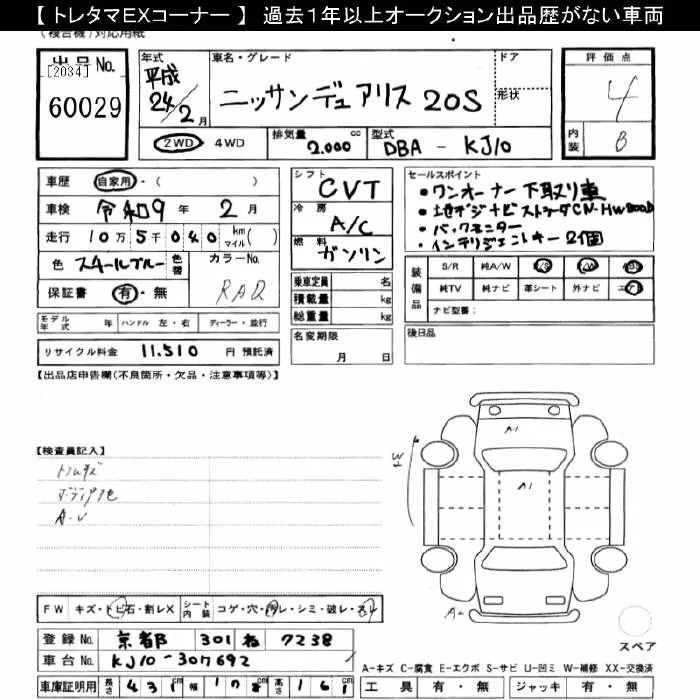 【 トレタマEXコーナー 】 過去1年以上オークション出品歴がない車両
(複合機)対応用紙
出品No.
[2034]
60029
年式
平成
24/2月
車名・グレード
ニッサンデュアリス 20S
ドア
形状
評価点
4
内装
B
2WD 4WD
排気量
2.000 cc
型式
DBA - KJ10
車歴 自家用・( )
車検 令和9 年 2 月
走行 10万5千040 km マイル( )
色 スチールブルー 色替 カラーNo.
保証書 有・無 RAQ
モデル年式 年 ハンドル 左・右 ディーラー・並行
リサイクル料金 11.510 円 預託済
シフト
CVT
冷房
A/C
燃料
ガソリン
乗車定員 名
積載量 kg
総重量 kg
名変期限
月 日
セールスポイント
・ワンオーナー 下取り車
・地デジナビ ストラーダCN-HW800D
・バックモニター
・インテリジェントキー2個
装備品
S/R 純A/W P/S P/W ABS
純TV 純ナビ 革シート 外ナビ エアB
ナビ型番:
後日品
【出品店申告欄(不良箇所・欠品・注意事項等)】
【検査員記入】
A・U
FW キズ・トビ石・割レX シート内装 コゲ・穴・汚レ・シミ・破レ・スレ
登録No. 京都 301 ね 7238
車台No. KJ10-307692
車庫証明用 長さ 431cm 幅 178cm 高さ 161cm
A1
A1
A2
スペア
A-キズ C-腐食 E-エクボ S-サビ U-凹ミ W-補修 XX-交換済
工具 有・無 ジャッキ 有・無